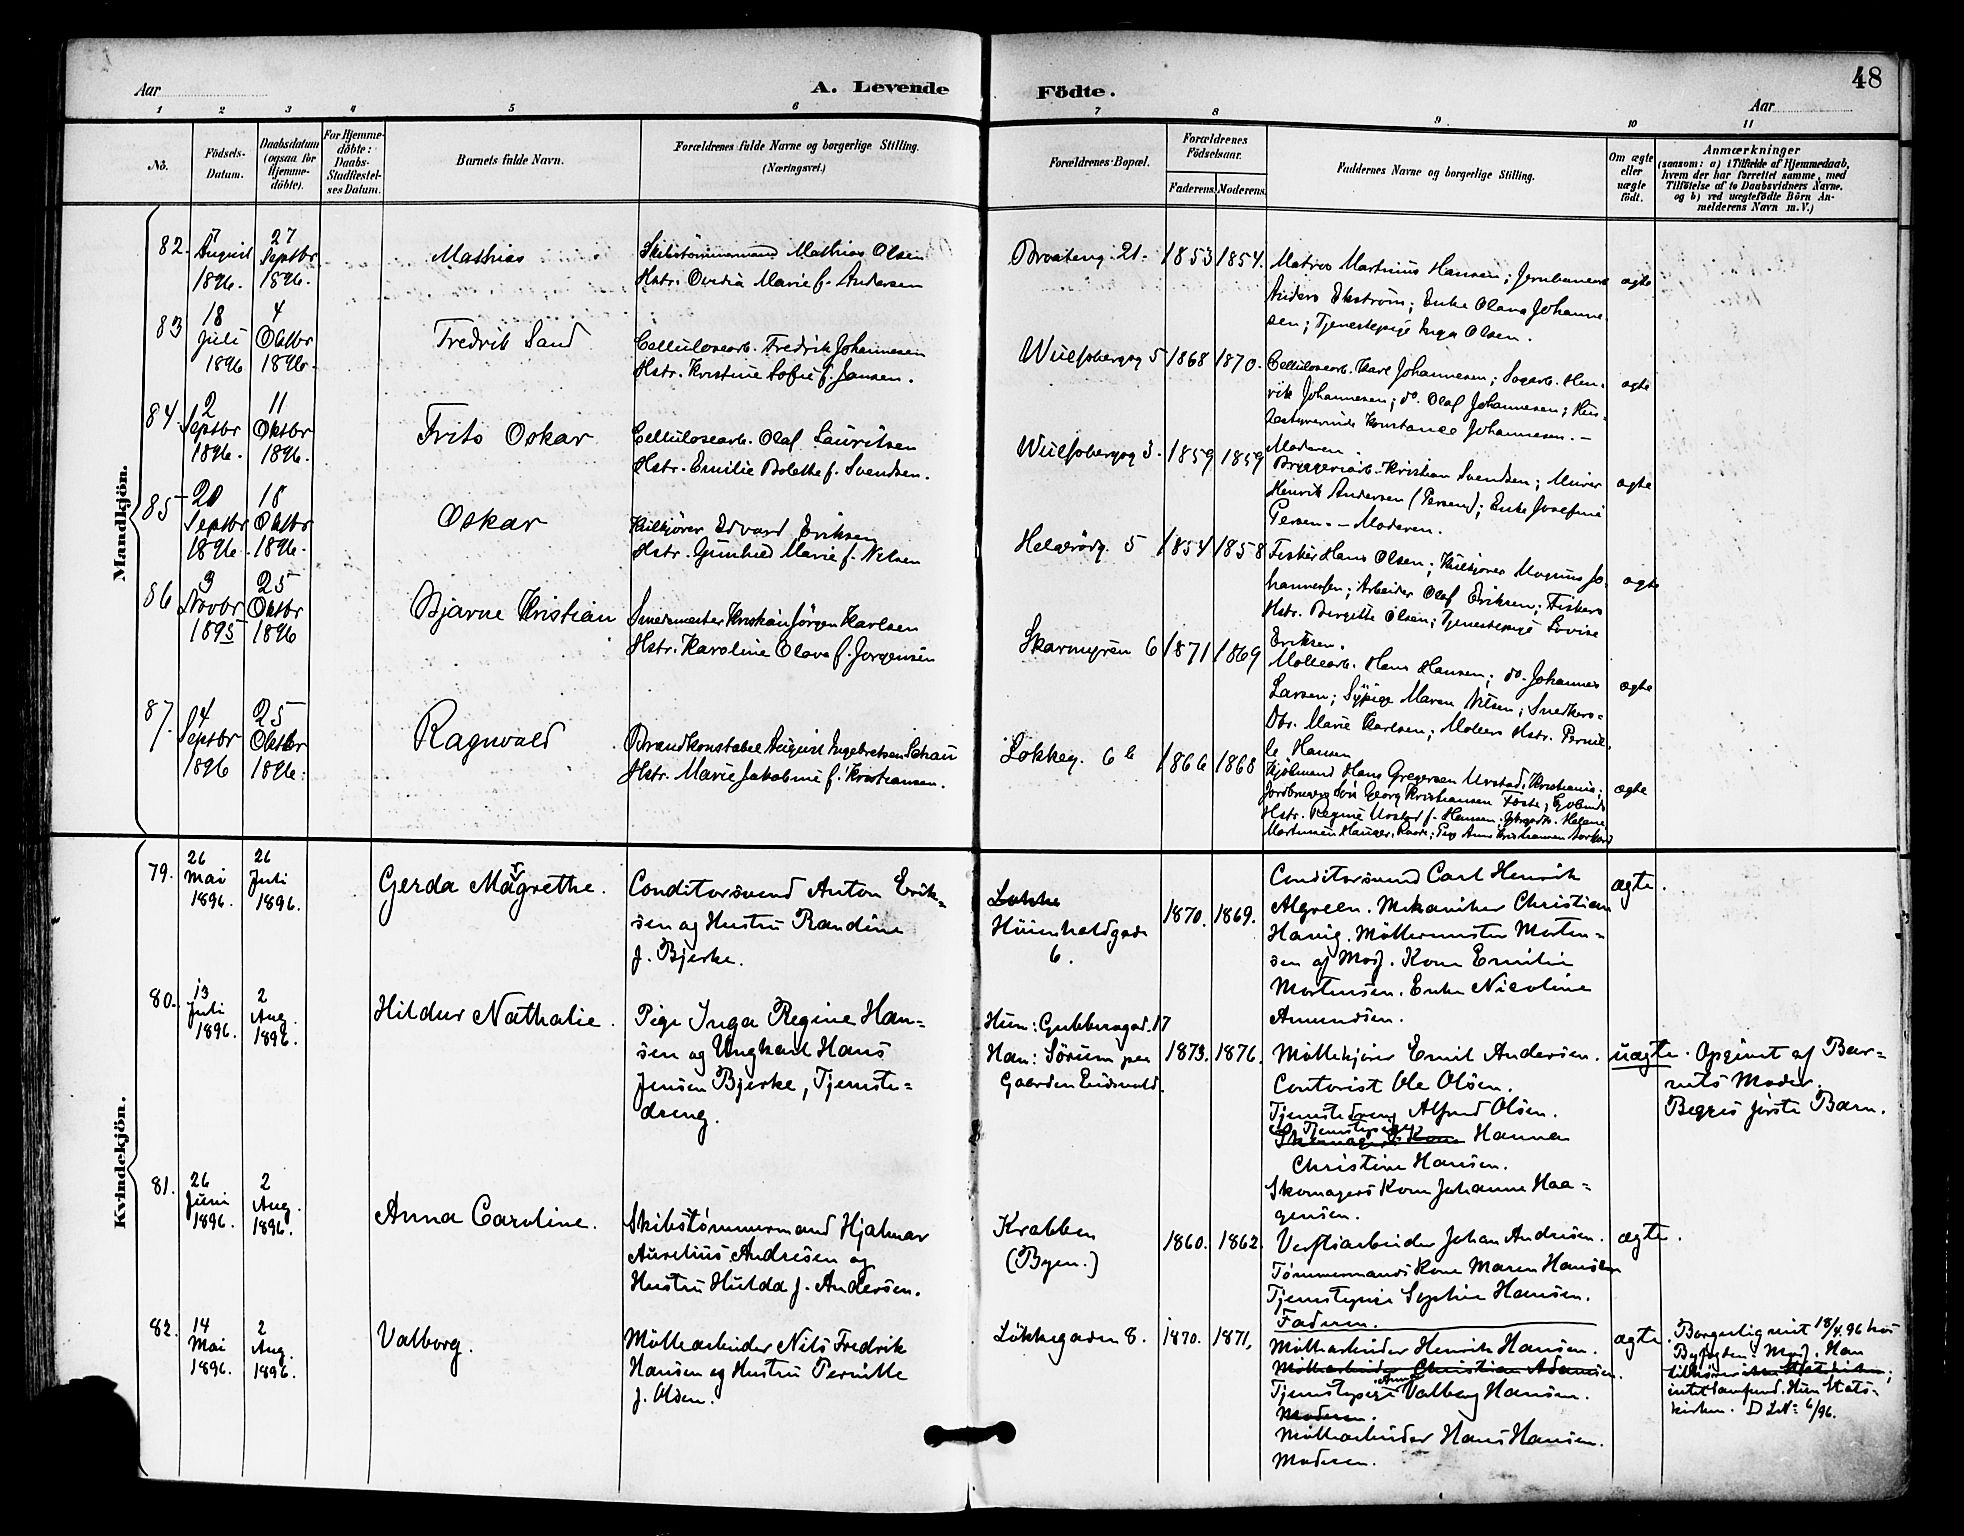 Aar
A. Levende
Födte.
48
Aar
1 2 3 4 5 6 7 8 9 10 11
No.
Födsels-
Datum.
Daabsdatum
(ogsaa for
Hjemme-
döbte).
For Hjemme-
döbte:
Daabs-
Stadfæstel-
ses Datum.
Barnets fulde Navn.
Forældrenes fulde Navne og borgerlige Stilling.
(Næringsvei.)
Forældrenes Bopæl.
Forældrenes
Födselsaar.
Faderens.
Moderens.
Faddernes Navne og borgerlige Stilling.
Om ægte
eller
uægte
födt.
Anmærkninger
(saasom: a) i Tilfælde af Hjemmedaab,
hvem der har forrettet samme, med
Tilföielse af to Daabsvidners Navne.
og b) ved uægtefödte Börn An-
melderens Navn m. V.)
Mandkjön.
82.
7
August
1896.
27
Septbr
1896.
Mathias
Skibstømmermand Mathias Olsen
Hstr. Ovidia Marie f. Andersen
Braateng. 21.
1853
1854.
Matros Martinius Hansen; Jernbanearb
Anders Ekstrøm; Enke Olava Johanne-
sen; Tjenestepige Inga Olsen.
ægte
83
18
Juli
1896
4
Oktbr
1896.
Fredrik Sand
Cellulosearb. Fredrik Johannesen
Hstr. Kristine Sofie f. Jansen.
Wulfsbergsg 5
1868
1870.
Cellulosearb. Karl Johannesen; Sagarb. Hen-
rik Johannesen; do. Olaf Johannesen; Hus-
bestyrerinde Konstance Johannesen. -
Moderen.
ægte
84.
2
Septbr
1896.
11
Oktbr
1896.
Frits Oskar
Cellulosearb. Olaf Lauritsen
Hstr. Emilie Bolette f. Svendsen.
Wulfsbergsg 3.
1859
1859
Bryggeriarb. Kristian Svendsen; Murer
Henrik Andersen (Persen); Enke Josefine
Persen. - Moderen.
ægte
85
20
Septbr
1896.
18
Oktbr
1896.
Oskar
Edvard Eriksen
Hstr. Gunhild Marie f. Nilsen
Helgerödg. 5
1854
1858
Fisker Hans Olsen; Magnus Jo-
hannessen; Arbeider Olaf Eriksen; Fiskers
Hstr. Birgitte Olsen; Tjenestepige Lovise
Eriksen.
ægte
86
3
Novbr
1895
25
Oktbr
1896
Bjarne Kristian
Smedmester Kristian Jörgen Karlsen
Hstr. Karoline Olava f. Jörgensen
Skarmyren 6
1871
1869
Møllearb. Hans Hansen; do. Johannes
Larsen; Sypige Maren Nilsen; Snedkers-
Dtr. Marie Karlsen; Møllers Hstr. Pernil-
le Hansen
ægte
87.
4
Septbr
1896
25
Oktbr
1896.
Ragnvald
Brandkonstabel August Ingebretsen Schau
Hstr. Marie Jakobine f. Kristiansen.
Løkkeg. 6 b
1866
1868
Kjöbmand Hans Gregersen Urstad, Kristiania;
Georg Kristiansen
Hstr. Regine Urstad f. Hansen; Helene
ægte
Kvindekjön.
79.
26
Mai
1896.
26
Juli
1896.
Gerda Magrethe.
Conditorsvend Anton Erik-
sen og Hustru Randine
f. Bjerke.
Løkke
Huienfeldgade
6.
1870.
1869.
Conditorsvend Carl Henrik
Algreen. Mekaniker Christian
Havig. Møllermester Morten-
sen af Mosj. Kone Emilie
Mortensen. Enke Nicoline
Amundsen.
ægte.
80.
13
Juli
1896.
2
Aug.
1896.
Hildur Nathalie.
Pige Inga Regine Han-
sen og Ungkarl Hans
Jensen Bjerke, Tjeneste-
dreng.
Hun: Gubberogad. 17
Han: Sörum paa
Gaarden Eidsvold.
1873.
1876.
Møllekjører Emil Andersen.
Contorist Ole Olsen.
Tjenestedreng Alfred Olsen.
Tjenestepige
Skomager Kone Hanna
Christine Hansen.
Skomagers Kone Johanne Haa-
gensen.
uægte.
Opgivet af Bar-
nets Moder.
Begges første Barn.
81.
26
Juni
1896.
2
Aug.
1896.
Anna Caroline.
Skibstømmermand Hjalmar
Aurelius Andresen og
Hustru Hulda f. Andersen.
Krabben
(Byen.)
1860.
1862.
Verftsarbeider Johan Andresen.
Tømmermands Kone Maren Hansen
Tjenestepige Sophie Hansen.
Faderen.
ægte.
82.
14
Mai
1896.
2
Aug.
1896.
Valborg.
Møllearbeider Nils Fredrik
Hansen og Hustru Pernille
f. Olsen.
Løkkegaden 8.
1870.
1871,
Møllearbeider Henrik Hansen.
Møllearbeider Christian Adamsen.
Anna
Tjenestepige Valborg Hansen.
Moderen.
Møllearbeider Hans Hansen.
Moderen.
ægte.
Borgerlig viet 18/4.96 hos
Byfogden i Mosj. Han
tilhører ikke Statskirken;
intet Samfund. Hun Stats-
kirken. D 6/96.